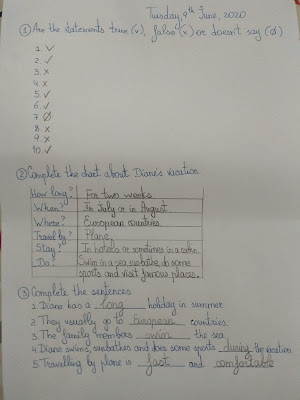 Tuesday, 9th June, 2020
① Are the statements true (v), false (x) or doesn't say (Ø)
1. ✓
2. ✓
3. x
4. x
5. ✓
6. ✓
7. Ø
8. x
9. x
10. ✓
② Complete the chart about Diane's vacation
How long? For two weeks
When? In July or in August
Where? European countries.
Travel by? Plane,
Stay? In hotels or sometimes in a cabin.
Do? Swim in a sea, sunbathe, do some
sports and visit famous places.
③ Complete the sentences
1. Diane has a long holiday in summer
2. They usually go to European countries.
3. The family members swim the sea
4. Diane swims, sunbathes and does some sports during the vacation
5. Travelling by plane is fast and comfortable